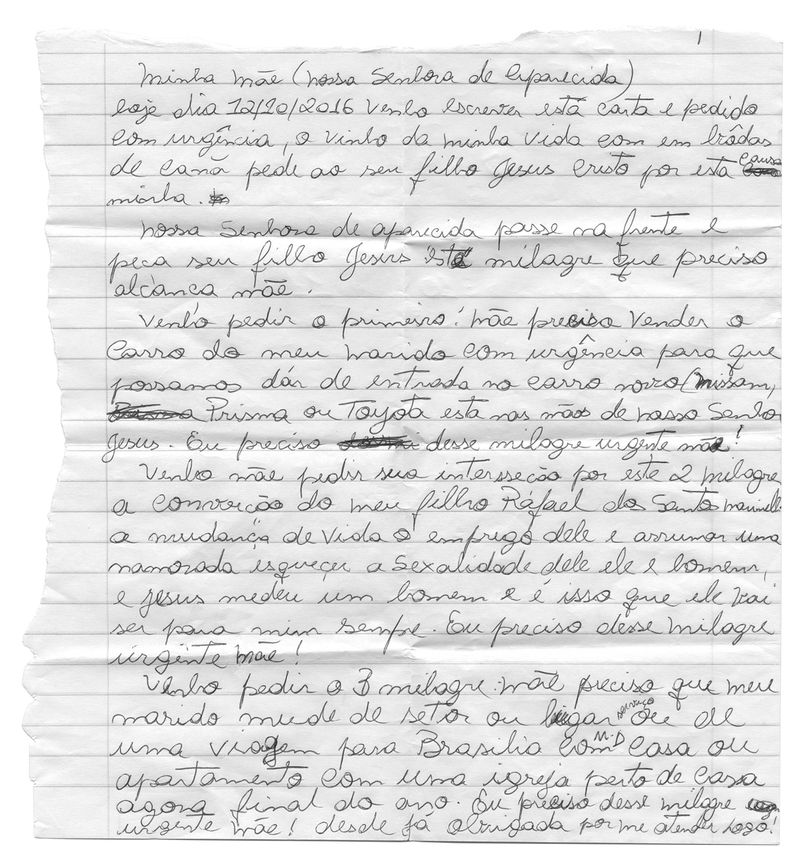 1
Minha mãe (nossa Senhora de Aparecida)
hoje dia 12/10/2016 venho escrever está carta e pedido
com urgência, o vinho da minha vida com em bôdas
de canã pede ao seu filho Jesus Cristo por esta causa
minha.
Nossa Senhora de aparecida passe na frente e
peça seu filho Jesus este milagre que preciso
alcança mãe.
Venho pedir o primeiro! mãe preciso vender o
Carro do meu marido com urgência para que
possamos dár de entrada no carro novo (nissam,
Prisma ou Toyota esta nas mãos de nosso Senho
Jesus. Eu preciso desse milagre urgente mãe!
Venho mãe pedir sua intersseção por este 2 milagre
a converção do meu filho Rafael dos Santos
a mudança de vida o emprego dele e arrumar uma
namorada esqueçer a Sexalidade dele ele e homem,
e Jesus medeu um homem e é isso que ele vai
ser para mim sempre. Eu preciso desse milagre
urgente mãe!
Venho pedir o 3 milagre. mãe preciso que meu
marido mude de setor ou lugar serviço ou de
uma viagem para Brasilia com M.D casa ou
apartamento com uma igreja perto de casa
agora final do ano. Eu preciso desse milagre
urgente mãe! desde já obrigada por me atender logo!